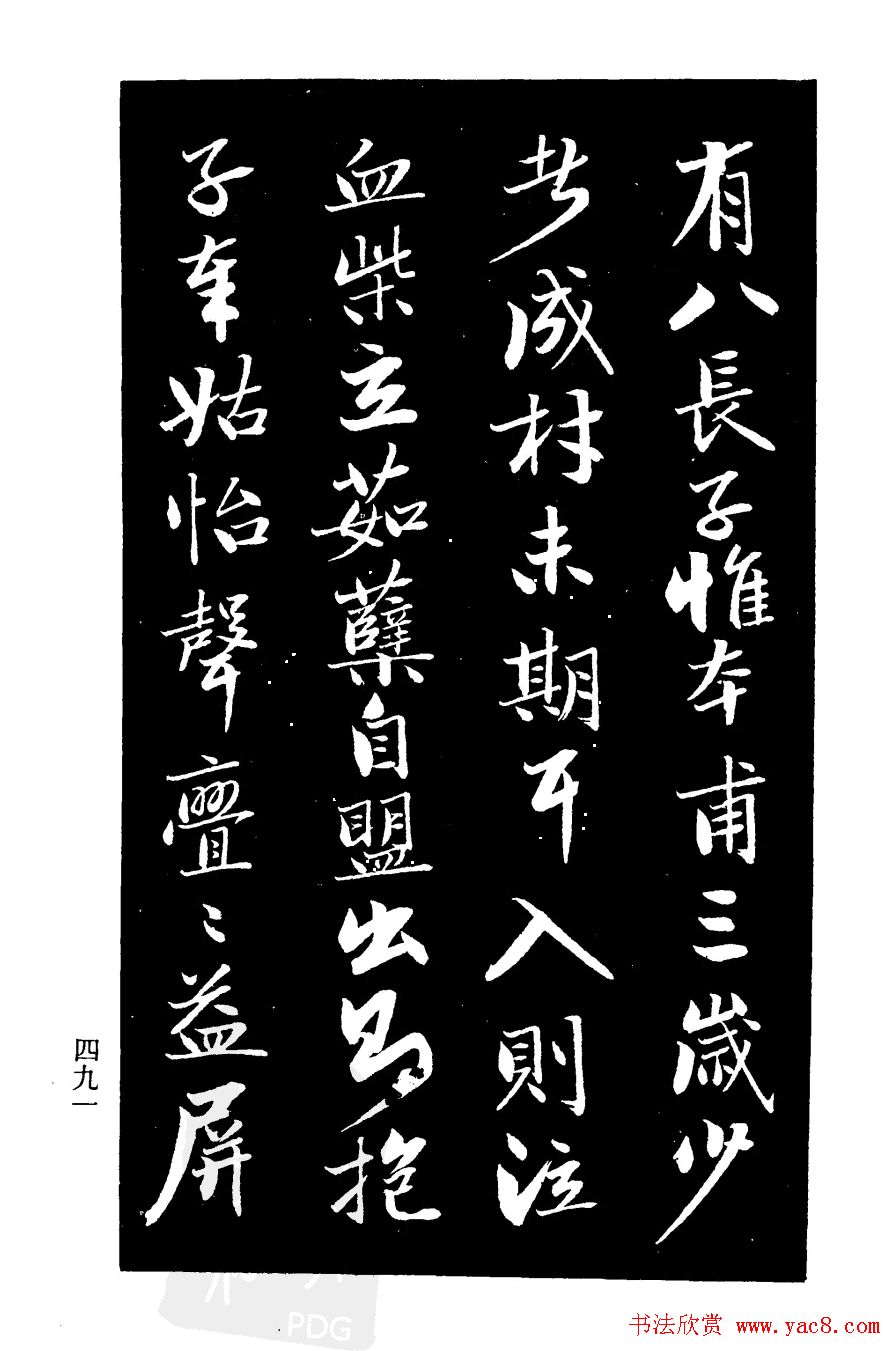 有八長子惟本甫三歲少
者成材未期耳入則泣
血柴立茹蘗自盟出即抱
子奉姑怡聲亹〻益屏
四九一
PDG
书法欣赏 www.yac8.com